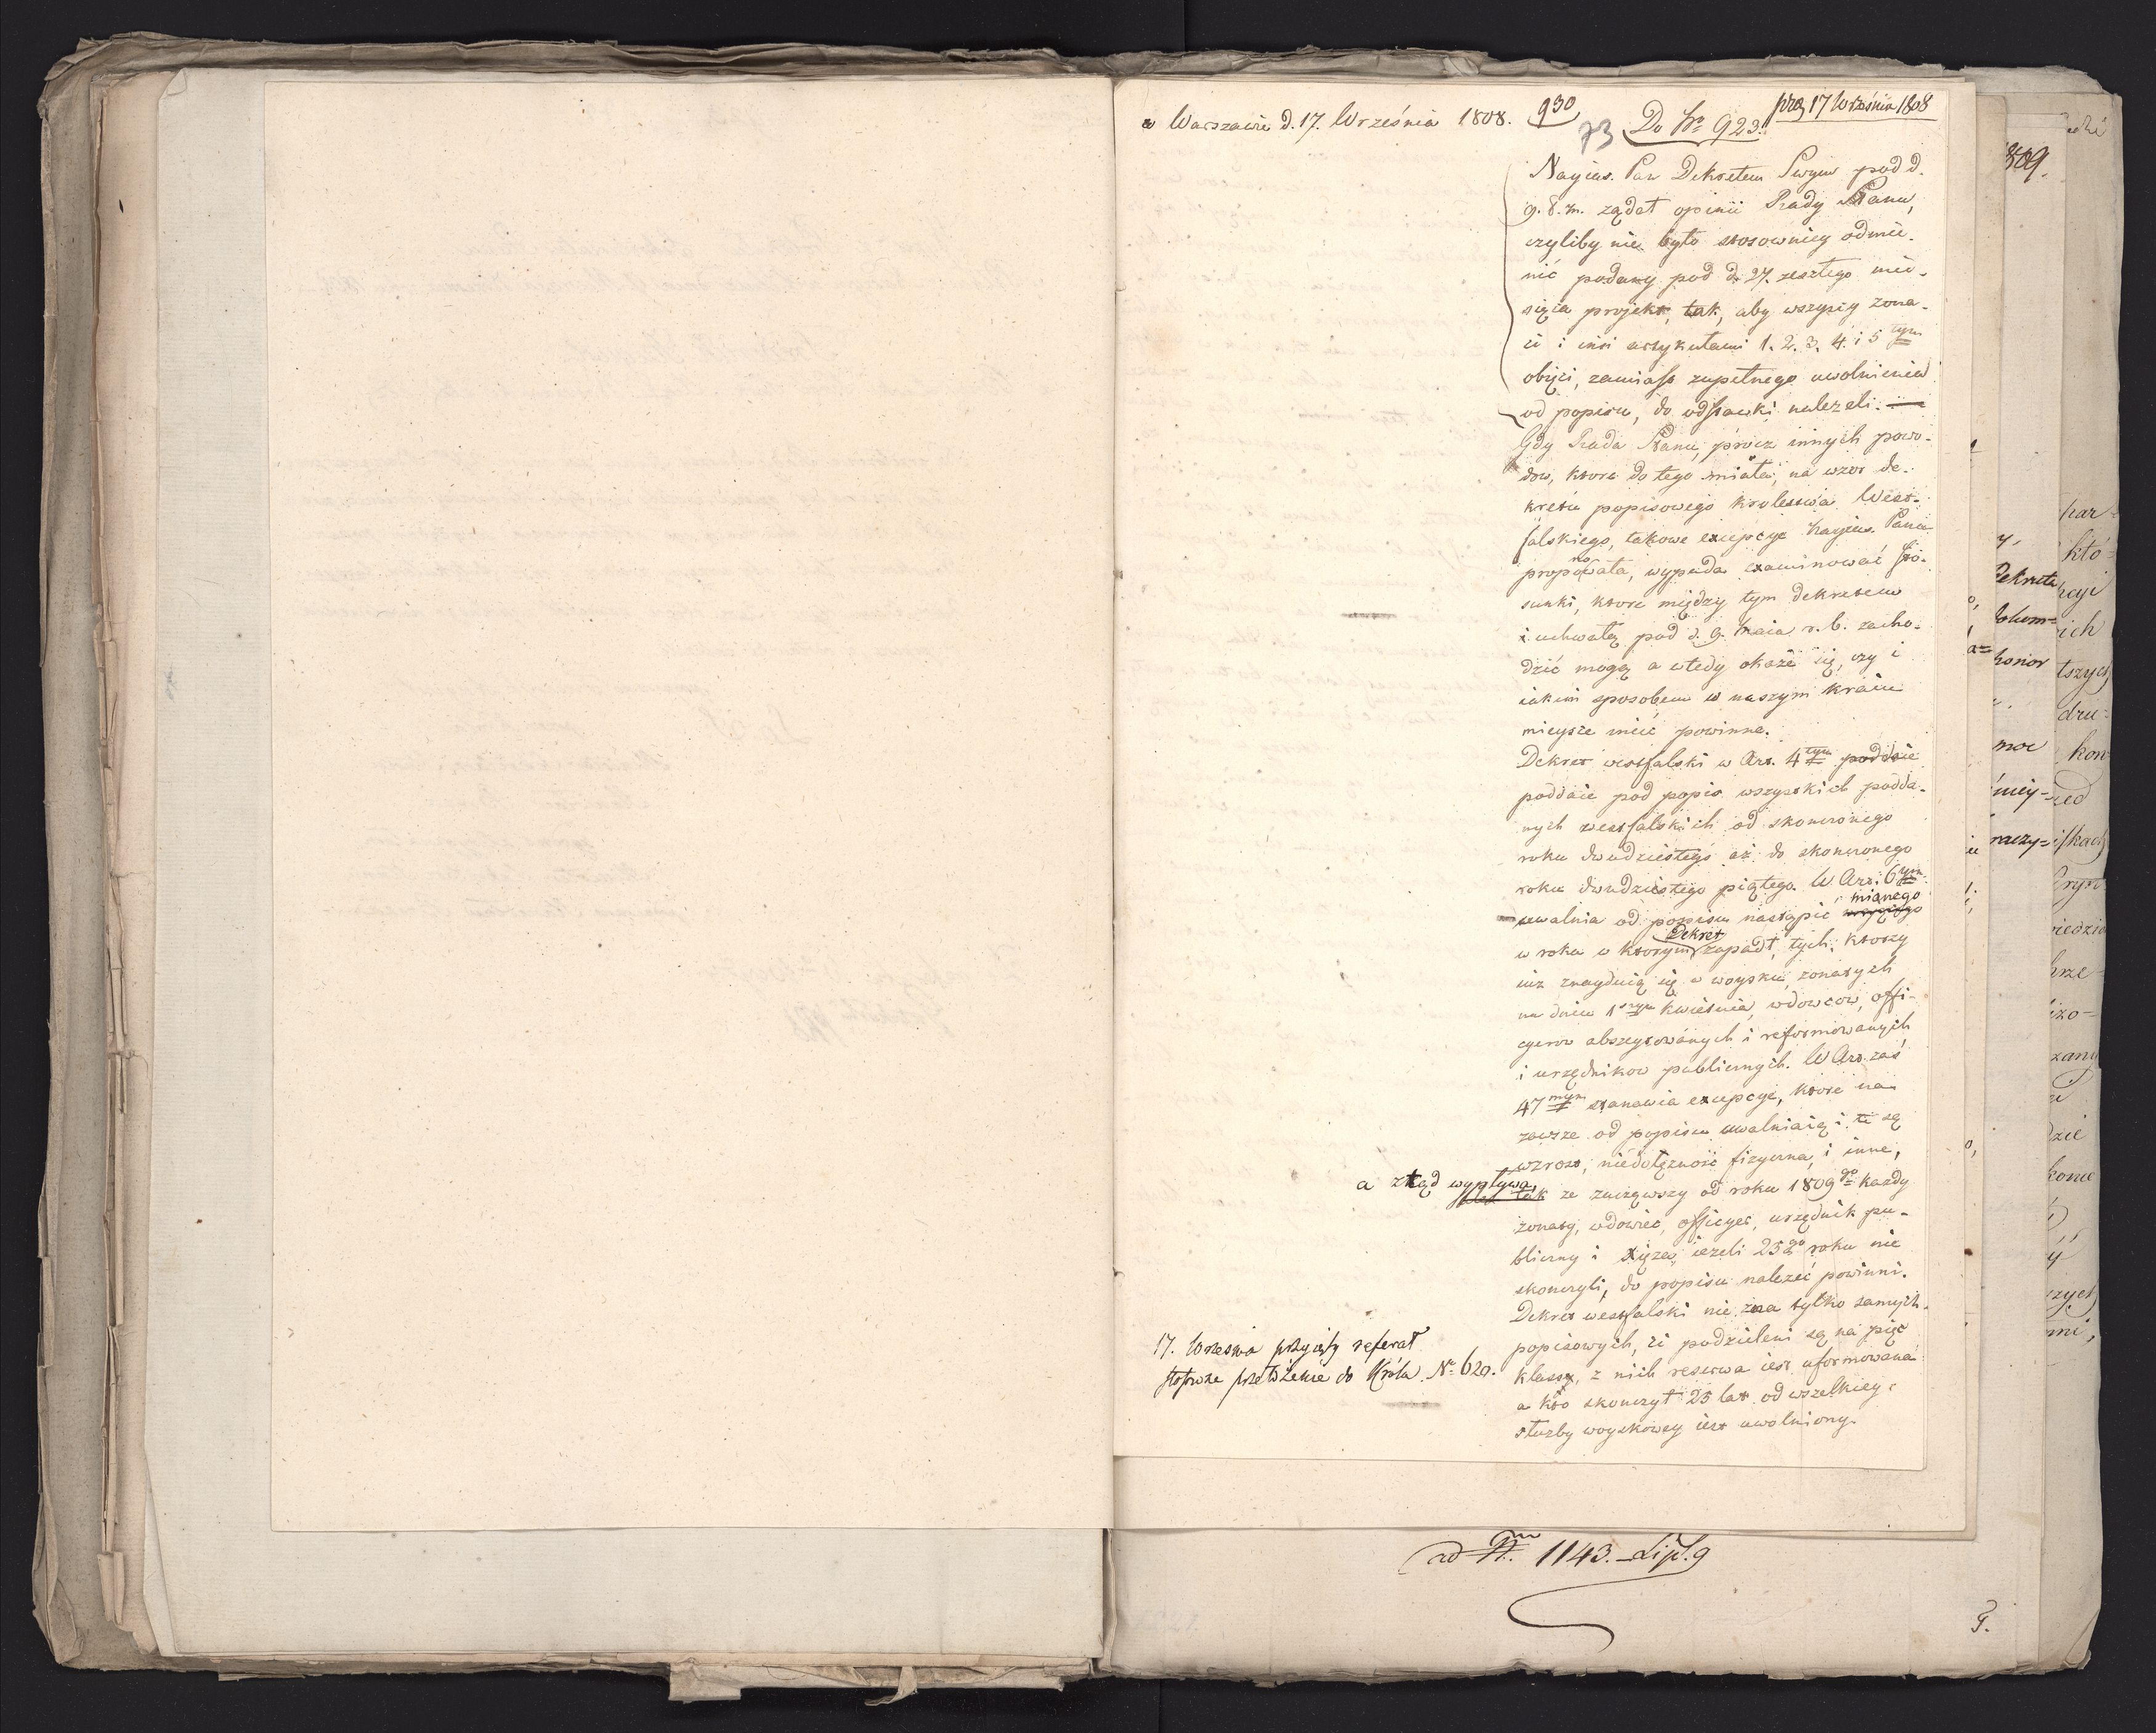 w Warszawie d. 17. Września 1808.
930
73
Do Nro 923.
prez 17 Września 1808
Nayias. Pan Dekretem Swym pod d.
9. b. m. ządał opinii Rady Stanu,
czyliby nie było stosowniey odmie-
nić podany pod d. 27. zeszłego mie-
siąca projekt, tak, aby wszyscy żona-
ci i inni artykułami 1. 2. 3. 4. i 5 tym
obięci, zamiast zupełnego uwolnienia
od popisu, do odstawki należeli. —
Gdy Rada Stanu, prócz innych powo-
dow, ktore do tego miała, na wzor de-
kretu popisowego krolestwa West-
falskiego, takowe excepcye Nayias. Panu
proponowała, wypada examinować sto-
sunki, ktore między tym dekretem
i uchwałą pod d. 9. Maia r. b. zacho-
dzić mogą a wtedy okaże się, czy i
iakim sposobem w naszym kraiu
mieysce mieć powinne.
Dekret westfalski w Art. 4 tym poddaie
poddaie pod popis wszystkich podda-
nych westfalskich od skonczonego
roku dwudziestego aż do skonczonego
roku dwudziestego piątego. W Art. 6 tym
uwalnia od popisu nastąpić mianego
w roku w ktorym Dekret zapadł, tych, ktorzy
iuż znayduią się w woysku, żonatych
na dniu 1 szym kwietnia, wdowcow, offi-
cyerow abszytowanych i reformowanych
i urzędnikow publicznych. W Art. zaś
47 mym stanawia excepcye, ktore na
zawsze od popisu uwalniaią i te są
wzrost, niedołężność fizyczna, i inne,
a ztąd wypływa,
tak ze zacząwszy od roku 1809 go każdy
żonaty, wdowiec, officyer, urzędnik pu-
bliczny i Xiądz, ieżeli 25 go roku nie
skonczyli, do popisu należeć powinni.
Dekret westfalski nie zna tylko samych
popisowych, ci podzieleni są na pięć
klassy, z nich reserwa iest uformowana
a kto skonczył 25 lat od wszelkiey
służby woyskowey iest uwolniony.
17. Wrzesnia przyięty referat
stosowne przełożenie do Króla. No 620.
ad Num 1143.
9.
1809.